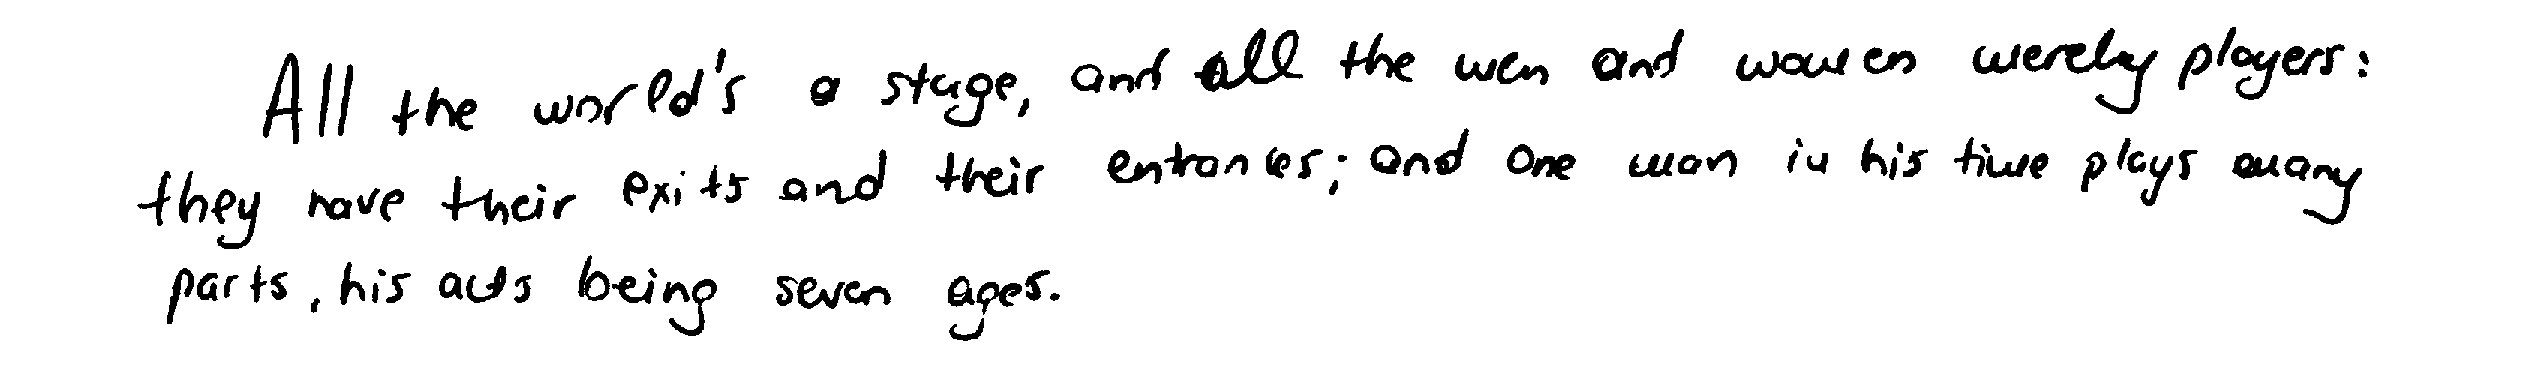 All the world's a stage, and all the men and women merely players:
they have their exits and their entrances; and one man in his time plays many
parts, his acts being seven ages.